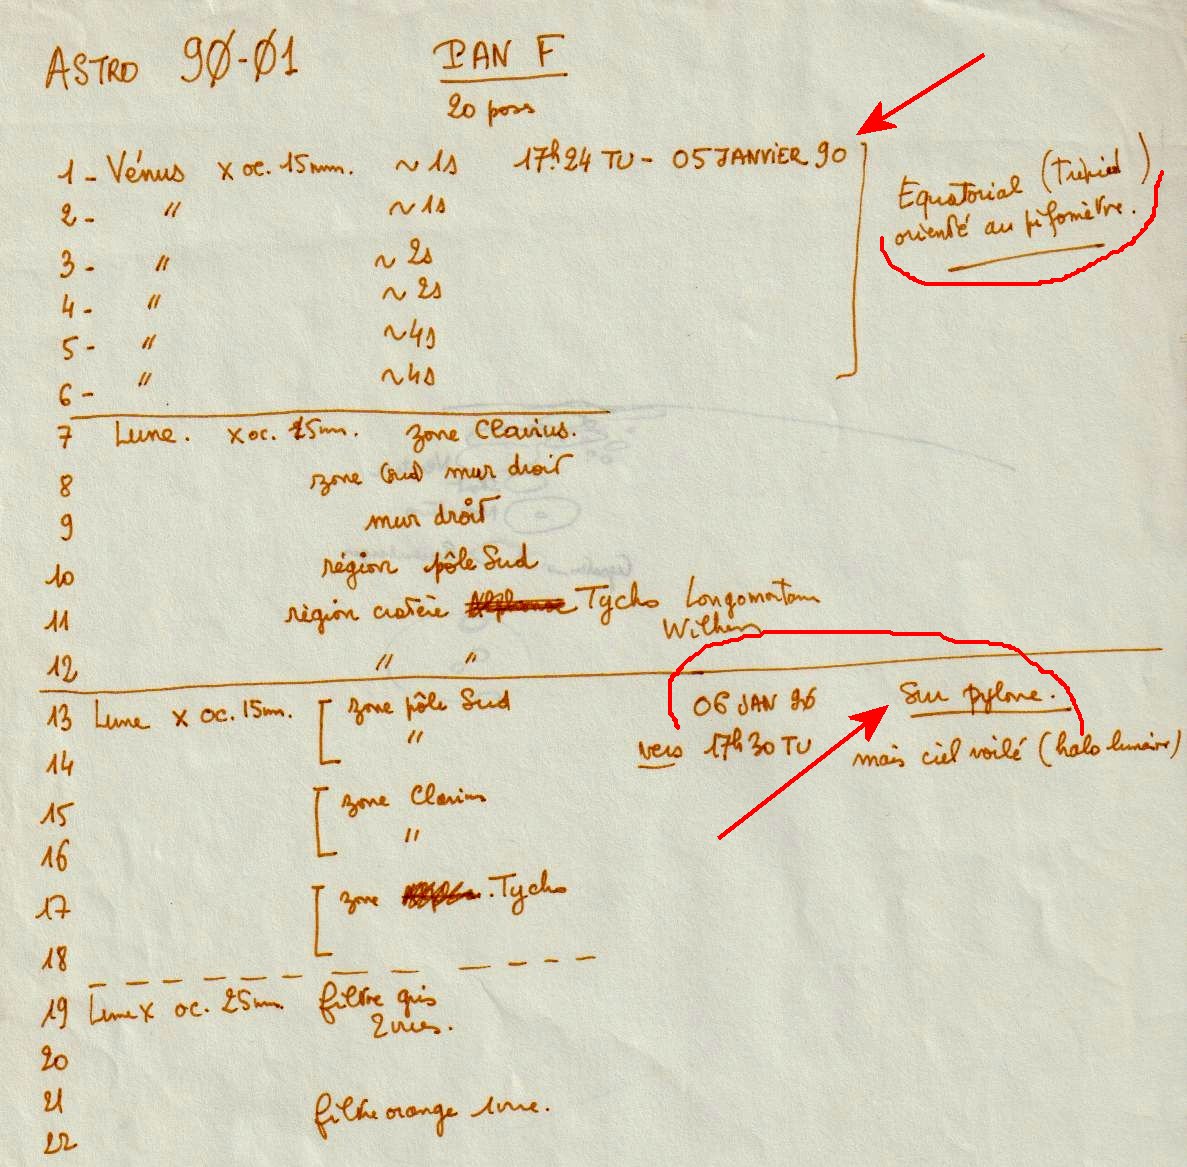 ASTRO 90-01 PAN F
20 poses
1 - Vénus x oc. 15mm. ~ 1s 17h24 TU - 05 JANVIER 90
Equatorial (Trépied)
orienté au pifomètre.
2 - " ~ 1s
3 - " ~ 2s
4 - " ~ 2s
5 - " ~ 4s
6 - " ~ 4s
7 Lune. x oc. 25mm. zone Clavius.
8 zone (sud) mur droit
9 mur droit
10 région pôle Sud
11 région cratère Tycho Longomontanus
Wilhem
12 " "
13 Lune x oc. 15mm. zone pôle Sud 06 JAN 90 Sur pylone.
14 " vers 17h30 TU mais ciel voilé (halo lunaire)
15 zone Clavius
16 "
17 zone Tycho
18
19 Lune x oc. 25mm. filtre gris
2 vues.
20
21 filtre orange 1 vue.
22